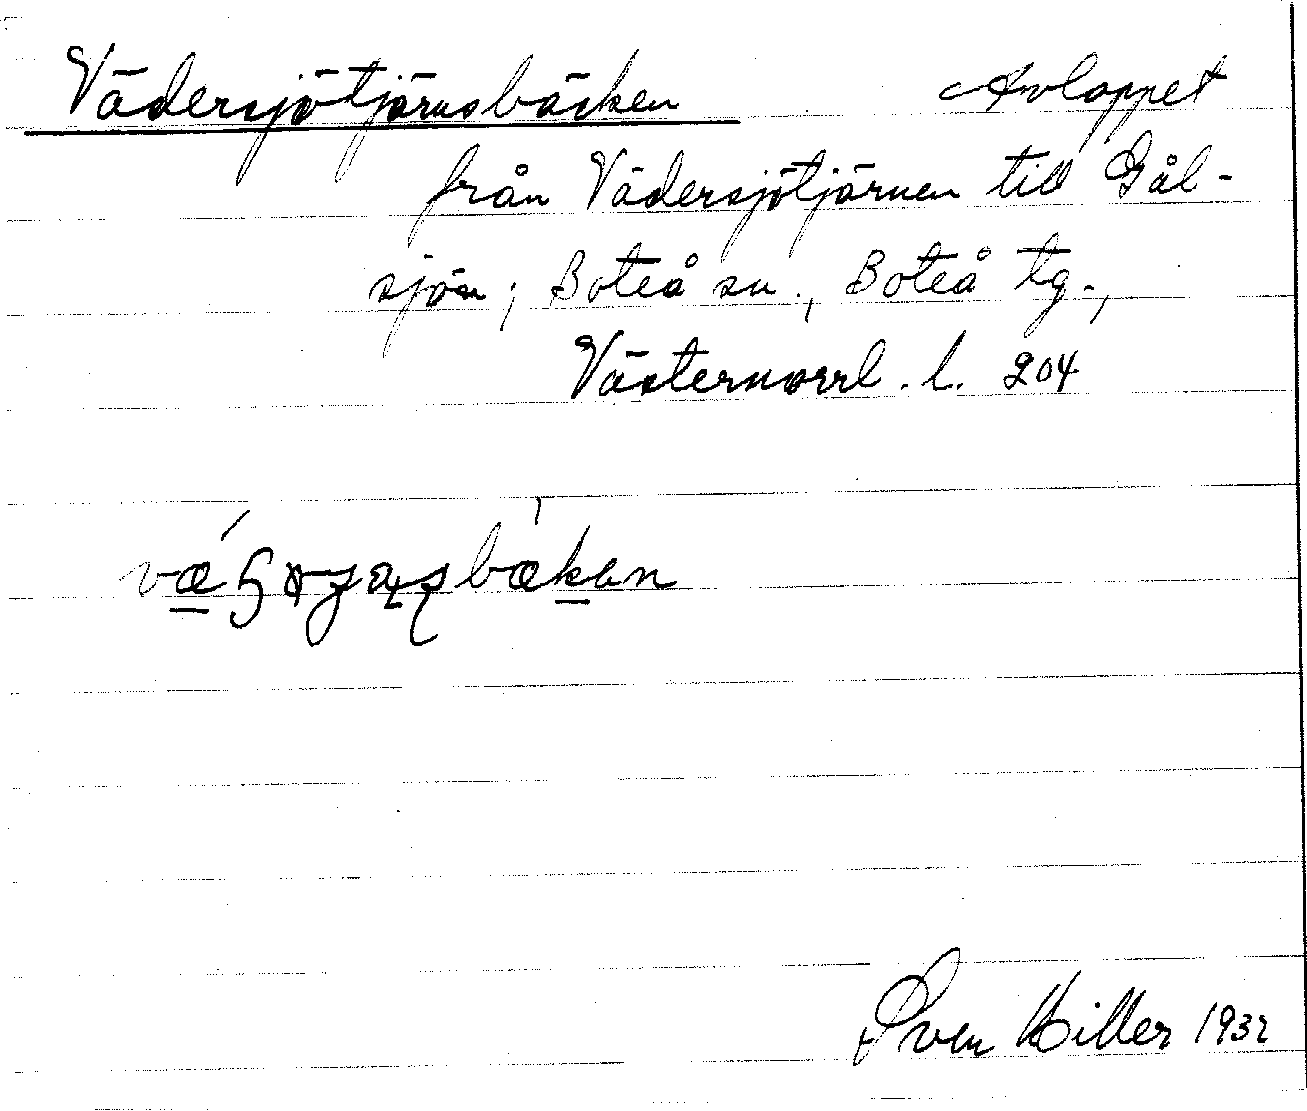 Vädersjötjärnsbäcken Avloppet
från Vädersjötjärnen till Gål-
sjön; Boteå sn., Boteå tg.,
Västernorrl. l. 204
Sven Hiller 1932